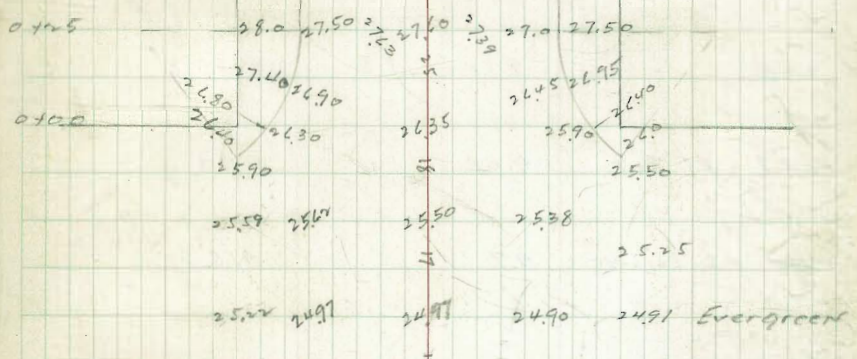 0+25 28.0 27.50 27.63 27.60 27.39 27.0 27.50
27.40 26.90 26.45 26.95
26.80 26.40
0+00 26.40 26.30 26.35 25.90 26.0
25.90 18 25.50
25.59 25.62 25.50 25.38
17 25.25
25.22 24.97 24.97 24.90 24.91 Evergreen